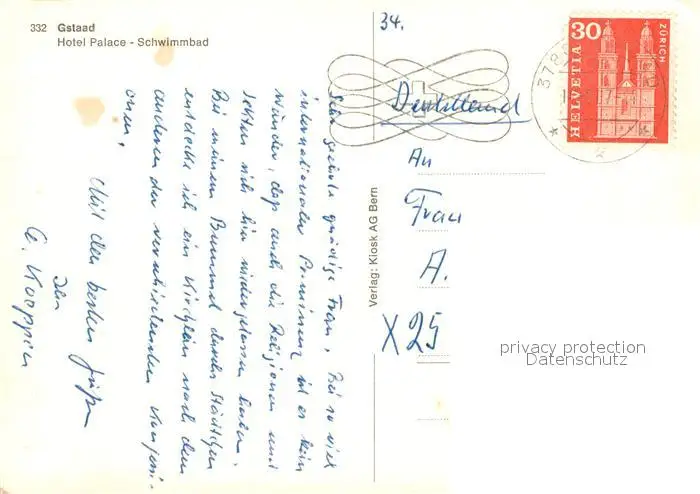 332 Gstaad
Hotel Palace - Schwimmbad
34.
HELVETIA 30 ZÜRICH
Deutschland
An
Frau
A.
X25
Verlag: Kiosk AG Bern
privacy protection
Datenschutz
Sehr geehrte gnädige Frau, Bei so viel
internationaler Prominenz ist es kein
Wunder, daß auch die Religionen und
Sekten sich hier niedergelassen haben.
Bei meinem Bummel durchs Städtchen
entdecke ich ein Kirchlein nach dem
anderen der verschiedensten Konfessi-
onen.
Mit den besten Grüßen
Ihr
A. Koeppen